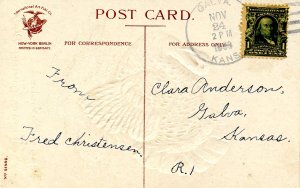 International Art Pub. Co.
NEW-YORK BERLIN
POST CARD.
GALVA,
NOV
24
2 PM
KANS
FOR CORRESPONDENCE
FOR ADDRESS ONLY
From
Fred Christensen
Clara Anderson,
Galva,
Kansas.
R.1